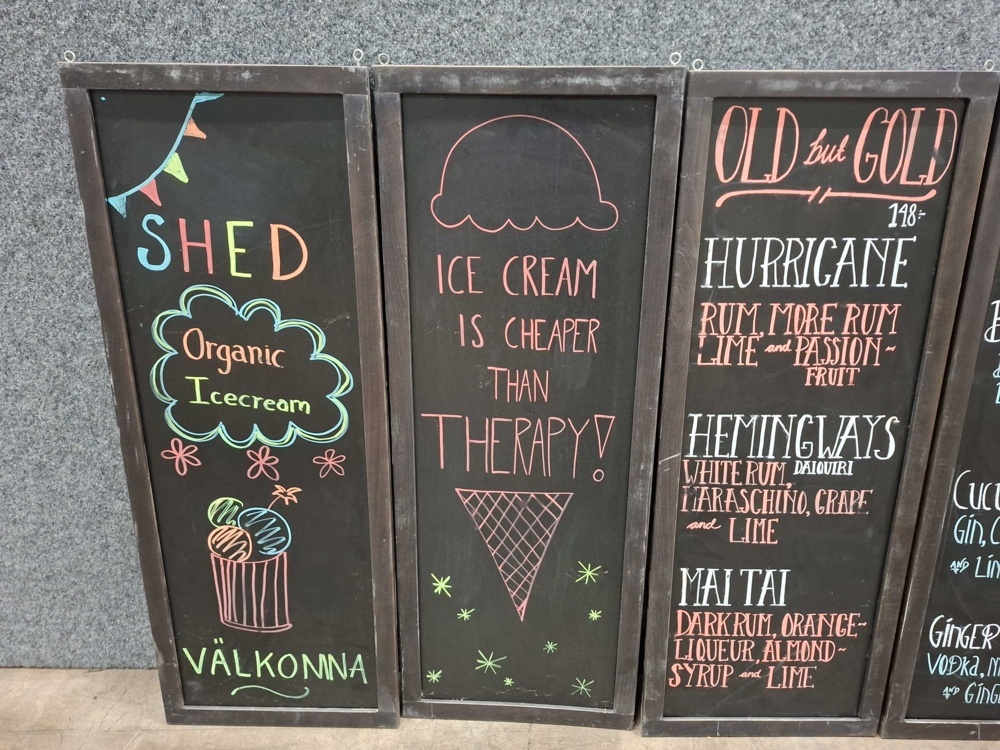 SHED
Organic
Icecream
VÄLKOMNA
ICE CREAM
IS CHEAPER
THAN
THERAPY!
OLD but GOLD
148:-
HURRICANE
RUM, MORE RUM
LIME and PASSION-
FRUIT
HEMINGWAYS
DAIQUIRI
WHITE RUM,
MARASCHINO, GRAPE
and LIME
MAI TAI
DARK RUM, ORANGE-
LIQUEUR, ALMOND-
SYRUP and LIME
GIN,
AND
GINGER
VODKA,
AND